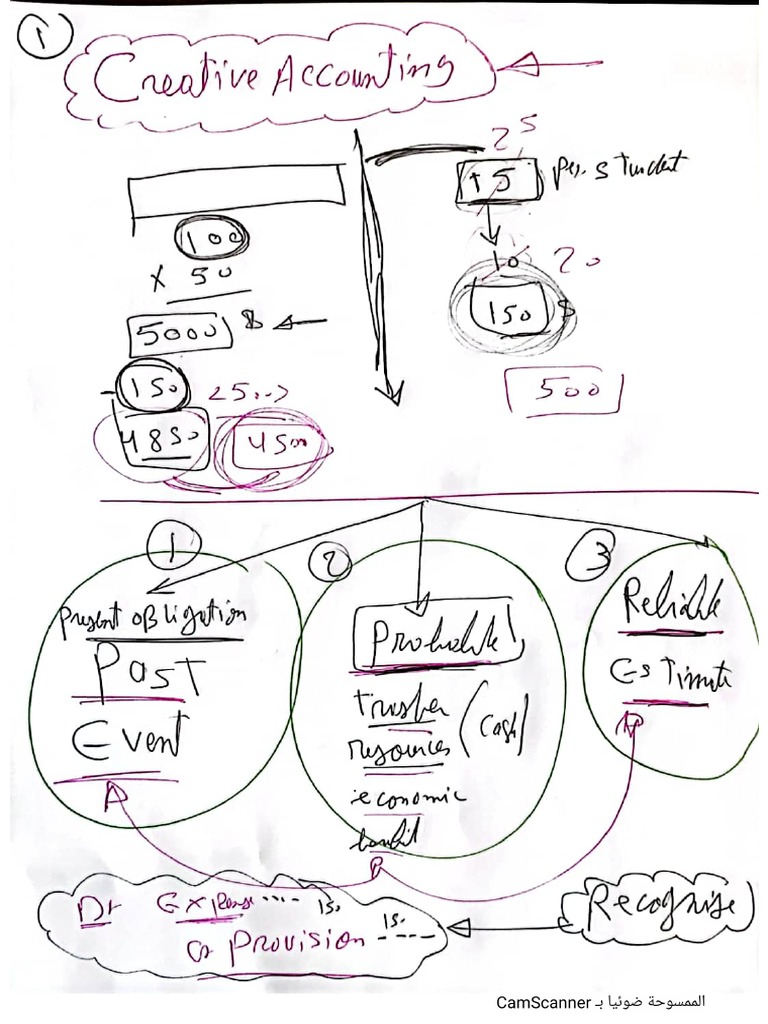 1
Creative Accounting
25
15 per student
100
10 20
x 50
150 $
5000 $
500
- 150
4850
1
2
3
Present obligation
Past
Event
Probable
transfer
resources (Cash)
economic
benefit
Reliable
Estimate
Recognise
Dr Expense .... 150
Cr Provision ---- 150
الممسوحة ضوئيا بـ CamScanner